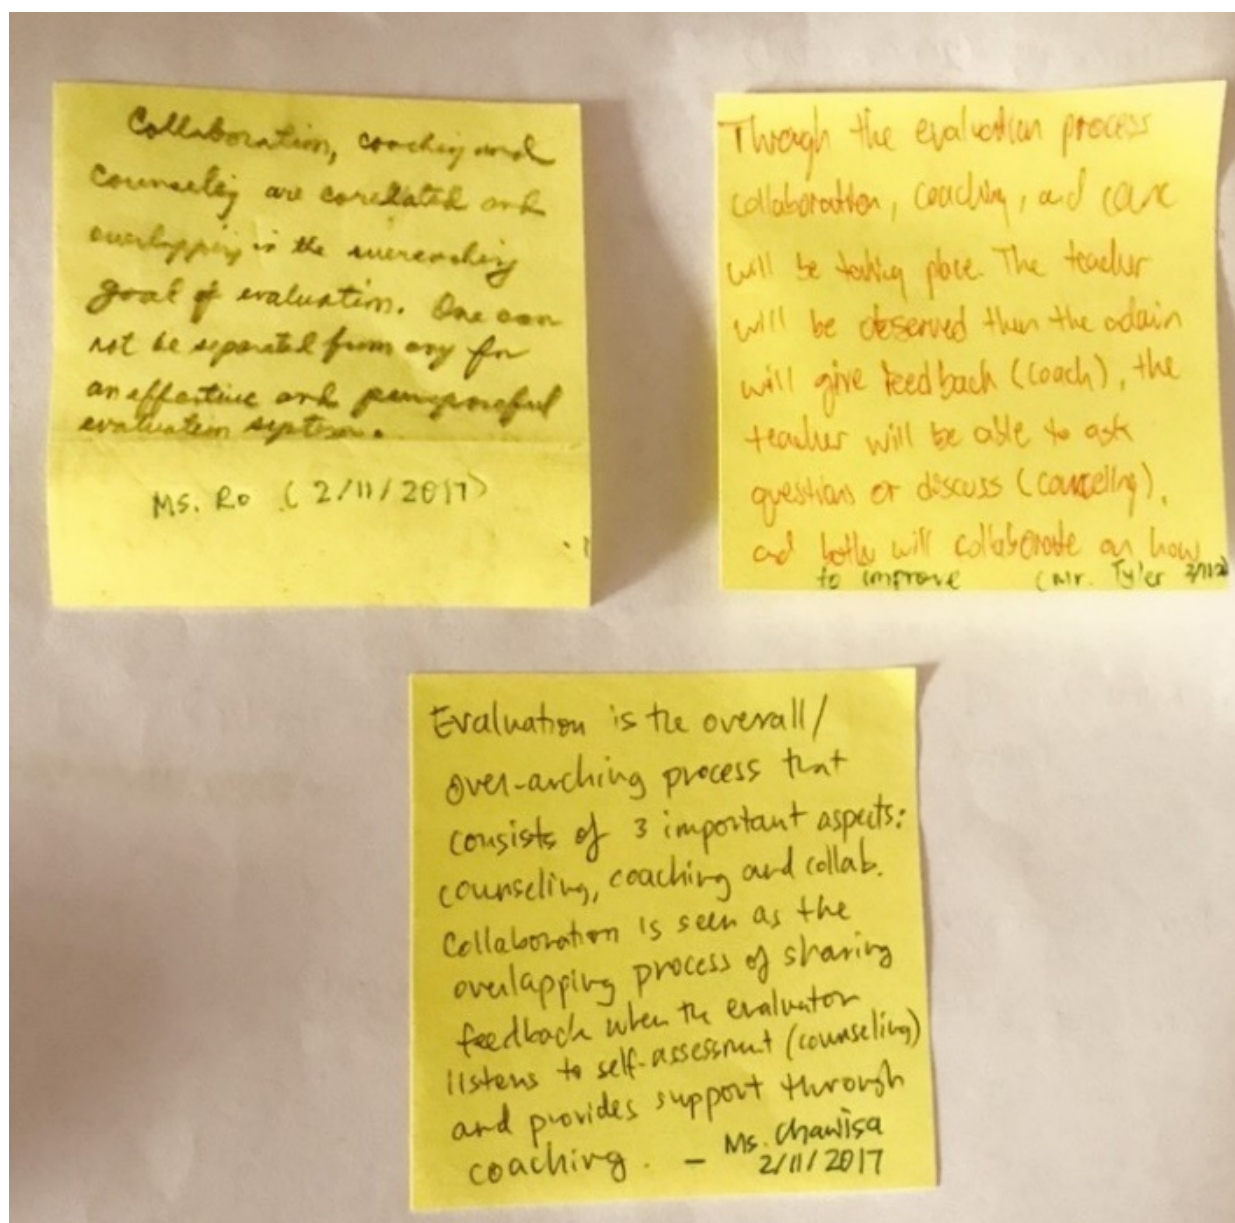 Collaboration, coaching and
counseling are corelated and
overlapping in the overarching
goal of evaluation. One can
not be separated from any for
an effective and
evaluation system.
Ms. Ro (2/11/2017)
Through the evaluation process
collaboration, coaching, and
will be taking place. The teacher
will be observed then the admin
will give feedback (coach), the
teacher will be able to ask
questions or discuss (counceling),
and both will collaborate on how
to improve (Mr. Tyler
Evaluation is the overall/
over-arching process that
consists of 3 important aspects:
counseling, coaching and collab.
Collaboration is seen as the
overlapping process of sharing
feedback when the evaluator
listens to self-assessment (counseling)
and provides support through
coaching. - Ms. Chawisa
2/11/2017